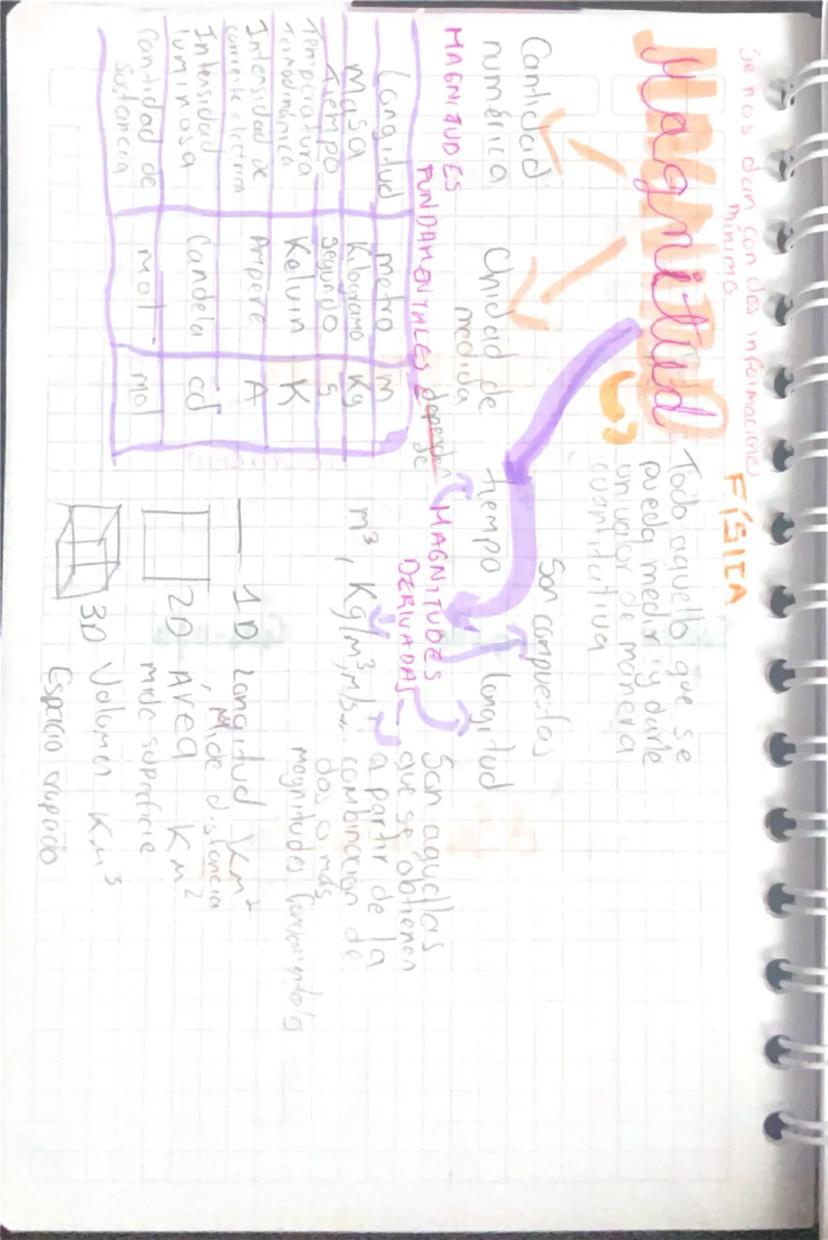 FÍSICA
Se nos dan con dos informaciones
mínimo
Magnitud
Todo aquello que se
pueda medir y darle
un valor de manera
cuantitativa
Cantidad
numérica
Unidad de
medida
Son compuestas
tiempo
longitud
MAGNITUDES
FUNDAMENTALES
depende
de
MAGNITUDES
DERIVADAS
Son aquellas
que se obtienen
a partir de la
combinación de
dos o más
magnitudes
m³, Kg/m³, m/s...
Longitud metro m
Masa Kilogramo Kg
Tiempo Segundo s
Temperatura
Termodinámica Kelvin K
Intensidad de
corriente eléctrica Ampere A
Intensidad
luminosa Candela cd
Cantidad de
sustancia mol mol
1D Longitud Km²
Mide distancia
2D Área Km²
Mide superficie
3D Volumen Km³
Espacio ocupado